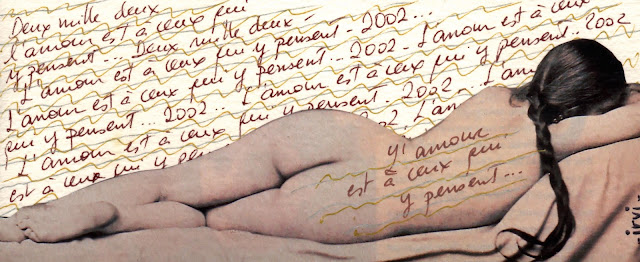 Deux mille deux
l'amour est à ceux qui
y pensent... Deux mille deux -
L'amour est à ceux qui y pensent - 2002...
L'amour est à ceux qui y pensent... 2002 - L'amour est à ceux
qui y pensent... 2002... L'amour est à ceux qui y pensent.. 2002
L'amour est à ceux qui y pensent - 2002..
est à ceux qui y pensent 2002 L'
L'amour
est à ceux qui
y pensent...